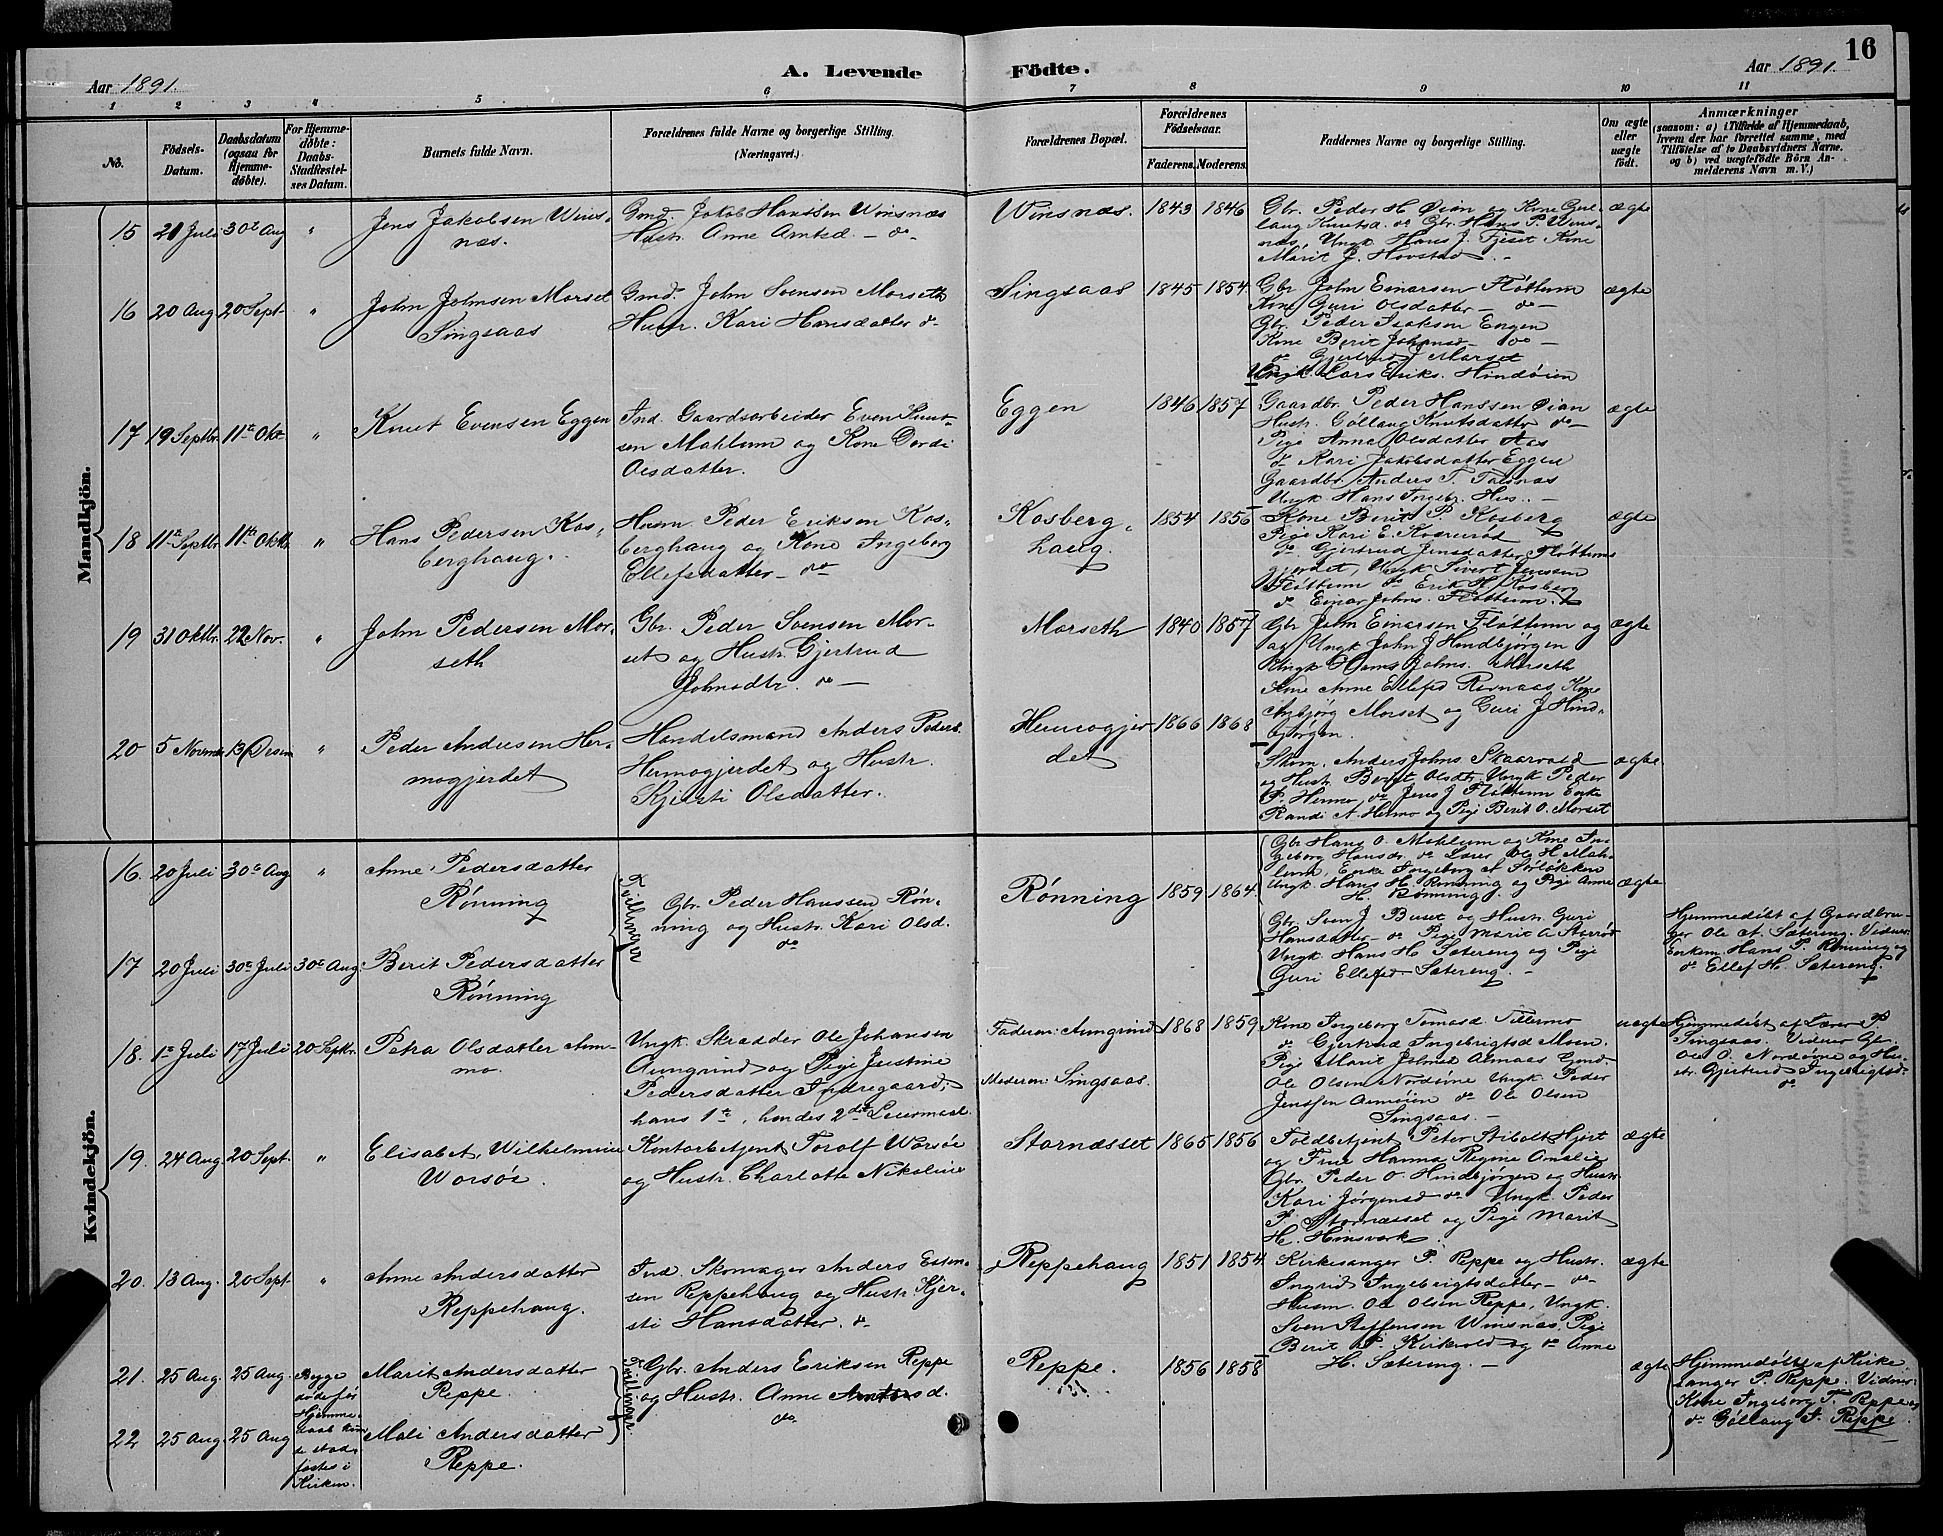 16
Aar 1891.
A. Levende Födte.
Aar 1891.
1 2 3 4 5 6 7 8 9 10 11
No.
Födsels-Datum.
Daabsdatum (ogsaa for Hjemme-döbte).
For Hjemme-döbte: Daabs-Stadfæstel-ses Datum.
Barnets fulde Navn.
Forældrenes fulde Navne og borgerlige Stilling. (Næringsvei.)
Forældrenes Bopæl.
Forældrenes Födselsaar.
Faderens. Moderens.
Faddernes Navne og borgerlige Stilling.
Om ægte eller uægte födt.
Anmærkninger
(saasom: a) i Tilfælde af Hjemmedaab,
hvem der har forrettet samme, med
Tilföielse af to Daabsvidners Navne.
og b) ved uægtefödte Börn An-
melderens Navn m. V.)
Mandkjön.
15 21 Juli 30te Aug " Jens Jakobsen Wins-
næs.
Gmd. Jakob Hanssen Winsnæs
Hustr. Anne Arntsd. - do -
Winsnæs. 1843 1846
Gbr. Peder H. Øian og Kone Gul-
laug Knutsd. do Gbr. Hans P. Wins-
næs, Ungk. Hans J. Fjeset Kone
Marit J. Hovstad. -
ægte
16 20 Aug 20 Sept " John Johnsen Morset
Singsaas
Gmd. John Svensen Morseth
Hustr. Kari Hansdatter do
Singsaas 1845 1854
Gbr John Einarsen Fløttum
Kone Guri Olsdatter - do -
Gbr. Peder Isaksen Engen
Kone Berit Johnsd - do -
do Gjertrud J Morset
Ungk. Lars Eriks. Hindöien
ægte
17 19 Septbr. 11te Okt " Knut Evensen Eggen
Ind. Gaardsarbeider Even Knut-
sen Mohlum og Kone Dordi
Olsdatter.
Eggen 1846 1857
Gaardbr. Peder Hanssen Øian
Hustr. Göllaug Knutsdatter do -
Pige Anna Olsdatter Aas
do Kari Jakobsdatter Eggen
Gaardbr. Anders T.
Ungk Hans Ingebr. Hus. -
ægte
18 11te Septbr. 11te Oktbr. " Hans Pedersen Kos-
berghaug.
Husm. Peder Eriksen Kos-
berghaug og Kone Ingeborg
Ellefsdatter - do
Kosberg-
haug. 1854 1856
Kone Berit P. Kosberg
Pige Kari E.
do. Gjertrud Jensdatter Fløttum-
gjerdet, Ungk Sivert Jenssen
Fløttum do Erik H. Kosberg
do Einar Johns. Fløttum.
ægte
19 31 Oktbr. 22 Nov. " John Pedersen Mor-
seth
Gbr. Peder Svensen Mor-
set og Hustr. Gjertrud
Johnsdtr. do -
Morseth 1840 1857
Gbr John Einarsen Fløttum og
Ungk John J Hindbjørgen
Ungk Hans Johns. Morseth
Kone Anne Ellefsd Kone
Morset og Guri J Hind-
bjørgen.
ægte
20 5 Novemb 13 Desem " Peder Andersen Her-
mogjerdet
Handelsmand Anders Peders.
Hermogjerdet og Hustr.
Kjersti Olsdatter.
Hermogjer-
det 1866 1868
Skom. Anders Johns Skaarvold
og Hustr. Berit Olsdtr. Ungk Peder
P. Hermo, do Jens J Fløttum Enke
Randi A. Hermo og Pige Berit O. Morset
ægte
Kvindekjön.
16. 20 Juli 30te Aug " Anne Pedersdatter
Rønning
Tvillinger
Gbr. Peder Hanssen Røn-
ning og Hustr. Kari Olsd.
do
Rønning 1859 1864.
Gbr Hans O. Mohlum og Kone In-
geborg Hansdr. do Lærer Ole H. Moh-
lum, Enke Ingeborg
Ungk. Hans H. Rønning og Pige Anne
H. Rønning.
ægte
17 20 Juli 30te Juli 30te Aug. Berit Pedersdatter
Rønning
Gbr. Sven J Buset og Hustr. Guri
Hansdatter - do Pige Marit A Storrø
Ungk Hans H Sætereng og Pige
Guri Ellefsd Sætereng. -
Hjemmedöbt af Gaardbru-
ger Ole A. Sætereng. Vidner
Enkem. Hans P. Rønning og
do Ellef H. Sætereng.
18. 1te Juli 17 Juli 20 Septr. Petra Olsdatter Aun-
mo.
Ungk. Skrædder Ole Johansen
Aungrind og Pige Justine
Pedersdatter Indregaard,
hans 1te, hendes 2det Leiermaal.
Faderen: Aungrind 1868 1859
Moderen: Singsaas.
Kone Ingeborg Tomasd. Tillermo
do Gjertrud Ingebrigtsd Moen.
Pige Marit Johnsd Almaas Gmd
Ole Olsen Nordöine Ungk. Peder
Jenssen do Ole Olsen
Singsaas. -
uægte
Hjemmedöbt af Lærer P.
Singsaas. Vidner Gbr.
Ole O. Nordöine og Hu-
str. Gjertrud Ingebrigtsd.
do
19. 24 Aug 20 Sept. " Elisabet, Wilhelmine
Worsöe.
Kontorbetjent Torolf Worsöe
og Hustr. Charlotte Nikoline
Stornæsset 1865 1856
Toldbetjent Peter Stibolt Hjort
og Frue Hanna Regine Amalie
Gbr. Peder O Hindbjørgen og Hustr.
Kari Jørgensd do Ungk. Peder
P. Stornæsset og Pige Marit
H. Hinsverk.
ægte
20. 13 Aug. 20 Sept " Anne Andersdatter
Reppehaug.
Ind. Skomager Anders Esten-
sen Reppehaug og Hustr. Kjer-
sti Hansdatter. do
Reppehaug 1851 1854
Kirkesanger P. Reppe og Hustr.
Ingrid Ingebrigtsdatter - do -
Husm. Ole Olsen Reppe, Ungk.
Sven Steffensen Winsnæs, Pige
Berit P. Kirkvold og do Anne
H. Sætereng. -
ægte
21. 25 Aug. 25 Aug. Begge
döde för
Hjemme-
daab kun-
de stad-
fæstes i
Kirken.
Marit Andersdatter
Reppe.
Tvillinger
Gbr. Anders Eriksen Reppe
og Hustr. Anne d.
do
Reppe. 1856 1858
ægte
Hjemmedöbt af Kirke-
sanger P. Reppe. Vidner:
Kone Ingeborg T. Reppe og
do Göllaug I. Reppe.
22 25 Aug. 25 Aug Mali Andersdatter
Reppe.